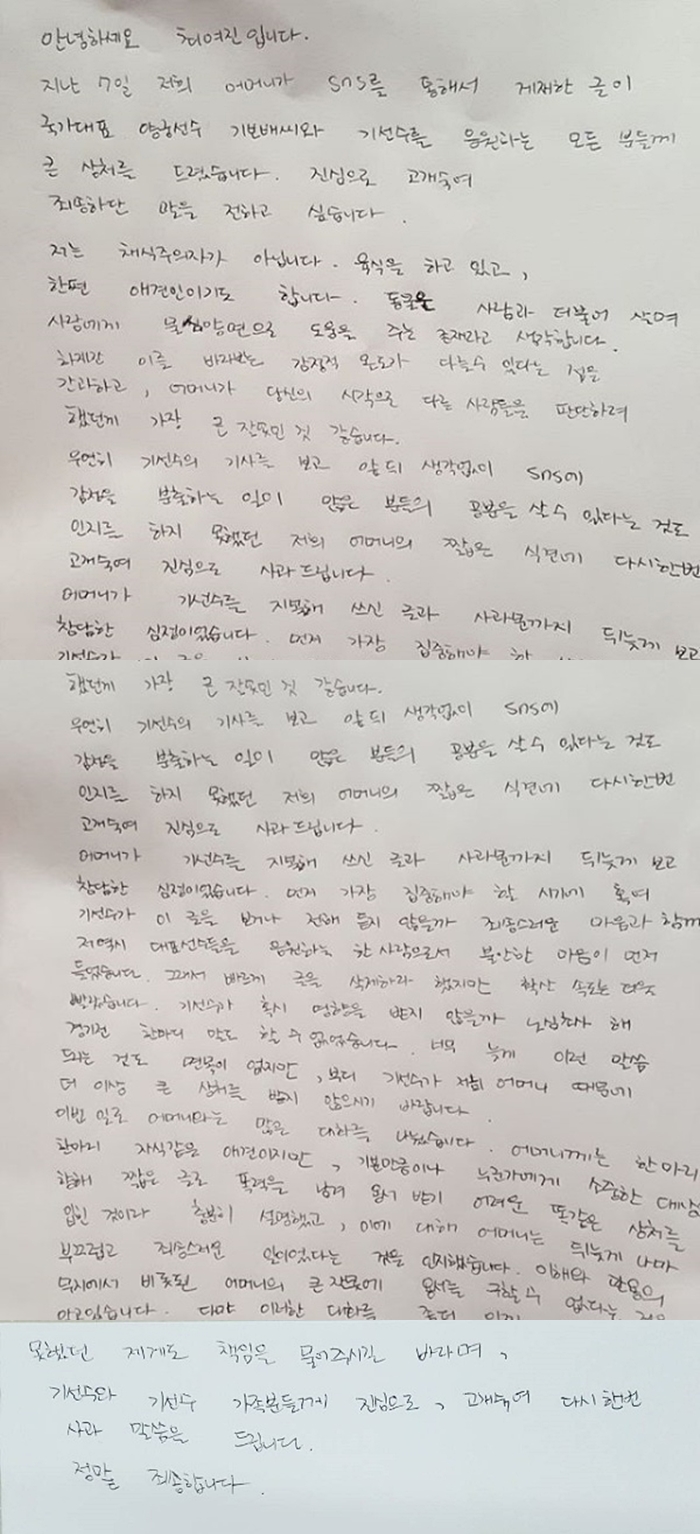 안녕하세요 최여진입니다.
지난 7일 저희 어머니가 SNS를 통해서 게재한 글이
국가대표 양궁선수 기보배씨와 기선수를 응원하는 모든 분들께
큰 상처를 드렸습니다. 진심으로 고개숙여
죄송하단 말을 전하고 싶습니다.
저는 채식주의자가 아닙니다. 육식을 하고 있고,
한편 애견인이기도 합니다. 동물은 사람과 더불어 살며
사람에게 물심양면으로 도움을 주는 존재라고 생각합니다.
하지만 이를 바라보는 감정적 온도가 다를수 있다는 점을
간과하고, 어머니가 당신의 시각으로 다른 사람들을 판단하려
했던게 가장 큰 잘못인 것 같습니다.
우연히 기선수의 기사를 보고 앞 뒤 생각없이 SNS에
감정을 분출하는 일이 많은 분들의 공분을 살 수 있다는 것도
인지를 하지 못했던 저희 어머니의 짧은 식견에 다시한번
고개숙여 진심으로 사과드립니다.
어머니가 기선수를 지목해 쓰신 글과 사과문까지 뒤늦게 보고
참담한 심정이었습니다. 먼저 가장 집중해야 할
기선수가
했던게 가장 큰 잘못인 것 같습니다.
우연히 기선수의 기사를 보고 앞 뒤 생각없이 SNS에
감정을 분출하는 일이 많은 분들의 공분을 살 수 있다는 것도
인지를 하지 못했던 저희 어머니의 짧은 식견에 다시한번
고개숙여 진심으로 사과드립니다.
어머니가 기선수를 지목해 쓰신 글과 사과문까지 뒤늦게 보고
참담한 심정이었습니다. 먼저 가장 집중해야 할 시기에 혹여
기선수가 이 글을 보거나 전해 듣지 않을까 죄송스러운 마음과 함께
저 역시 대표선수들을 응원하는 한 사람으로서 불안한 마음이 먼저
들었습니다. 그래서 바르게 글을 삭제하라 했지만 확산 속도는 더욱
빨랐습니다. 기선수가 혹시 영향을 받지 않을까 노심초사 해
경기전 한마디 말도 할 수 없었습니다. 너무 늦게 이런 말씀
드리는 것도 면목이 없지만, 부디 기선수가 저희 어머니 때문에
더 이상 큰 상처를 받지 않으시기 바랍니다.
이번 일로 어머니와는 많은 대화를 나눴습니다. 어머니께는 한 마리
한마리 자식같은 애견이지만, 기보배양이나 누군가에게 소중한 대상을
향해 짧은 글로 폭력을 남겨 용서 받기 어려운 똑같은 상처를
입힌 것이라 충분히 설명했고, 이에 대해 어머니는 뒤늦게 나마
부끄럽고 죄송스러운 일이었다는 것을 인지했습니다. 이해와 관용의
무지에서 비롯된 어머니의 큰 잘못에 용서를 구할 수 없다는 것을
알고있습니다. 다만 이러한 대화를 좀더 일찍
못했던 제게도 책임을 물어주시길 바라며,
기선수와 기선수 가족분들께 진심으로, 고개숙여 다시한번
사과 말씀을 드립니다.
정말 죄송합니다.